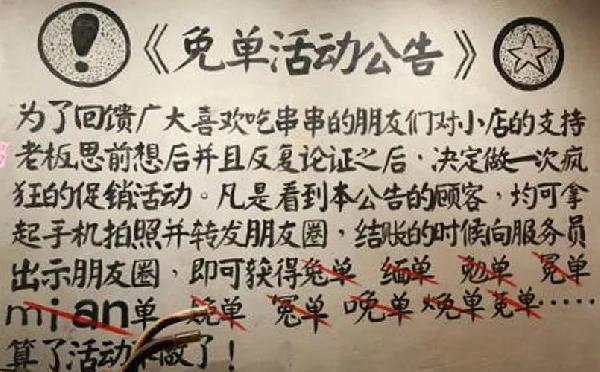 《免单活动公告》
为了回馈广大喜欢吃串串的朋友们对小店的支持
老板思前想后并且反复论证之后，决定做一次疯
狂的促销活动。凡是看到本公告的顾客，均可拿
起手机拍照并转发朋友圈，结账的时候向服务员
出示朋友圈，即可获得兔单 缅单 勉单 冕单
mian单 娩单 冤单 晚单 烧单 兔单……
算了活动不做了！